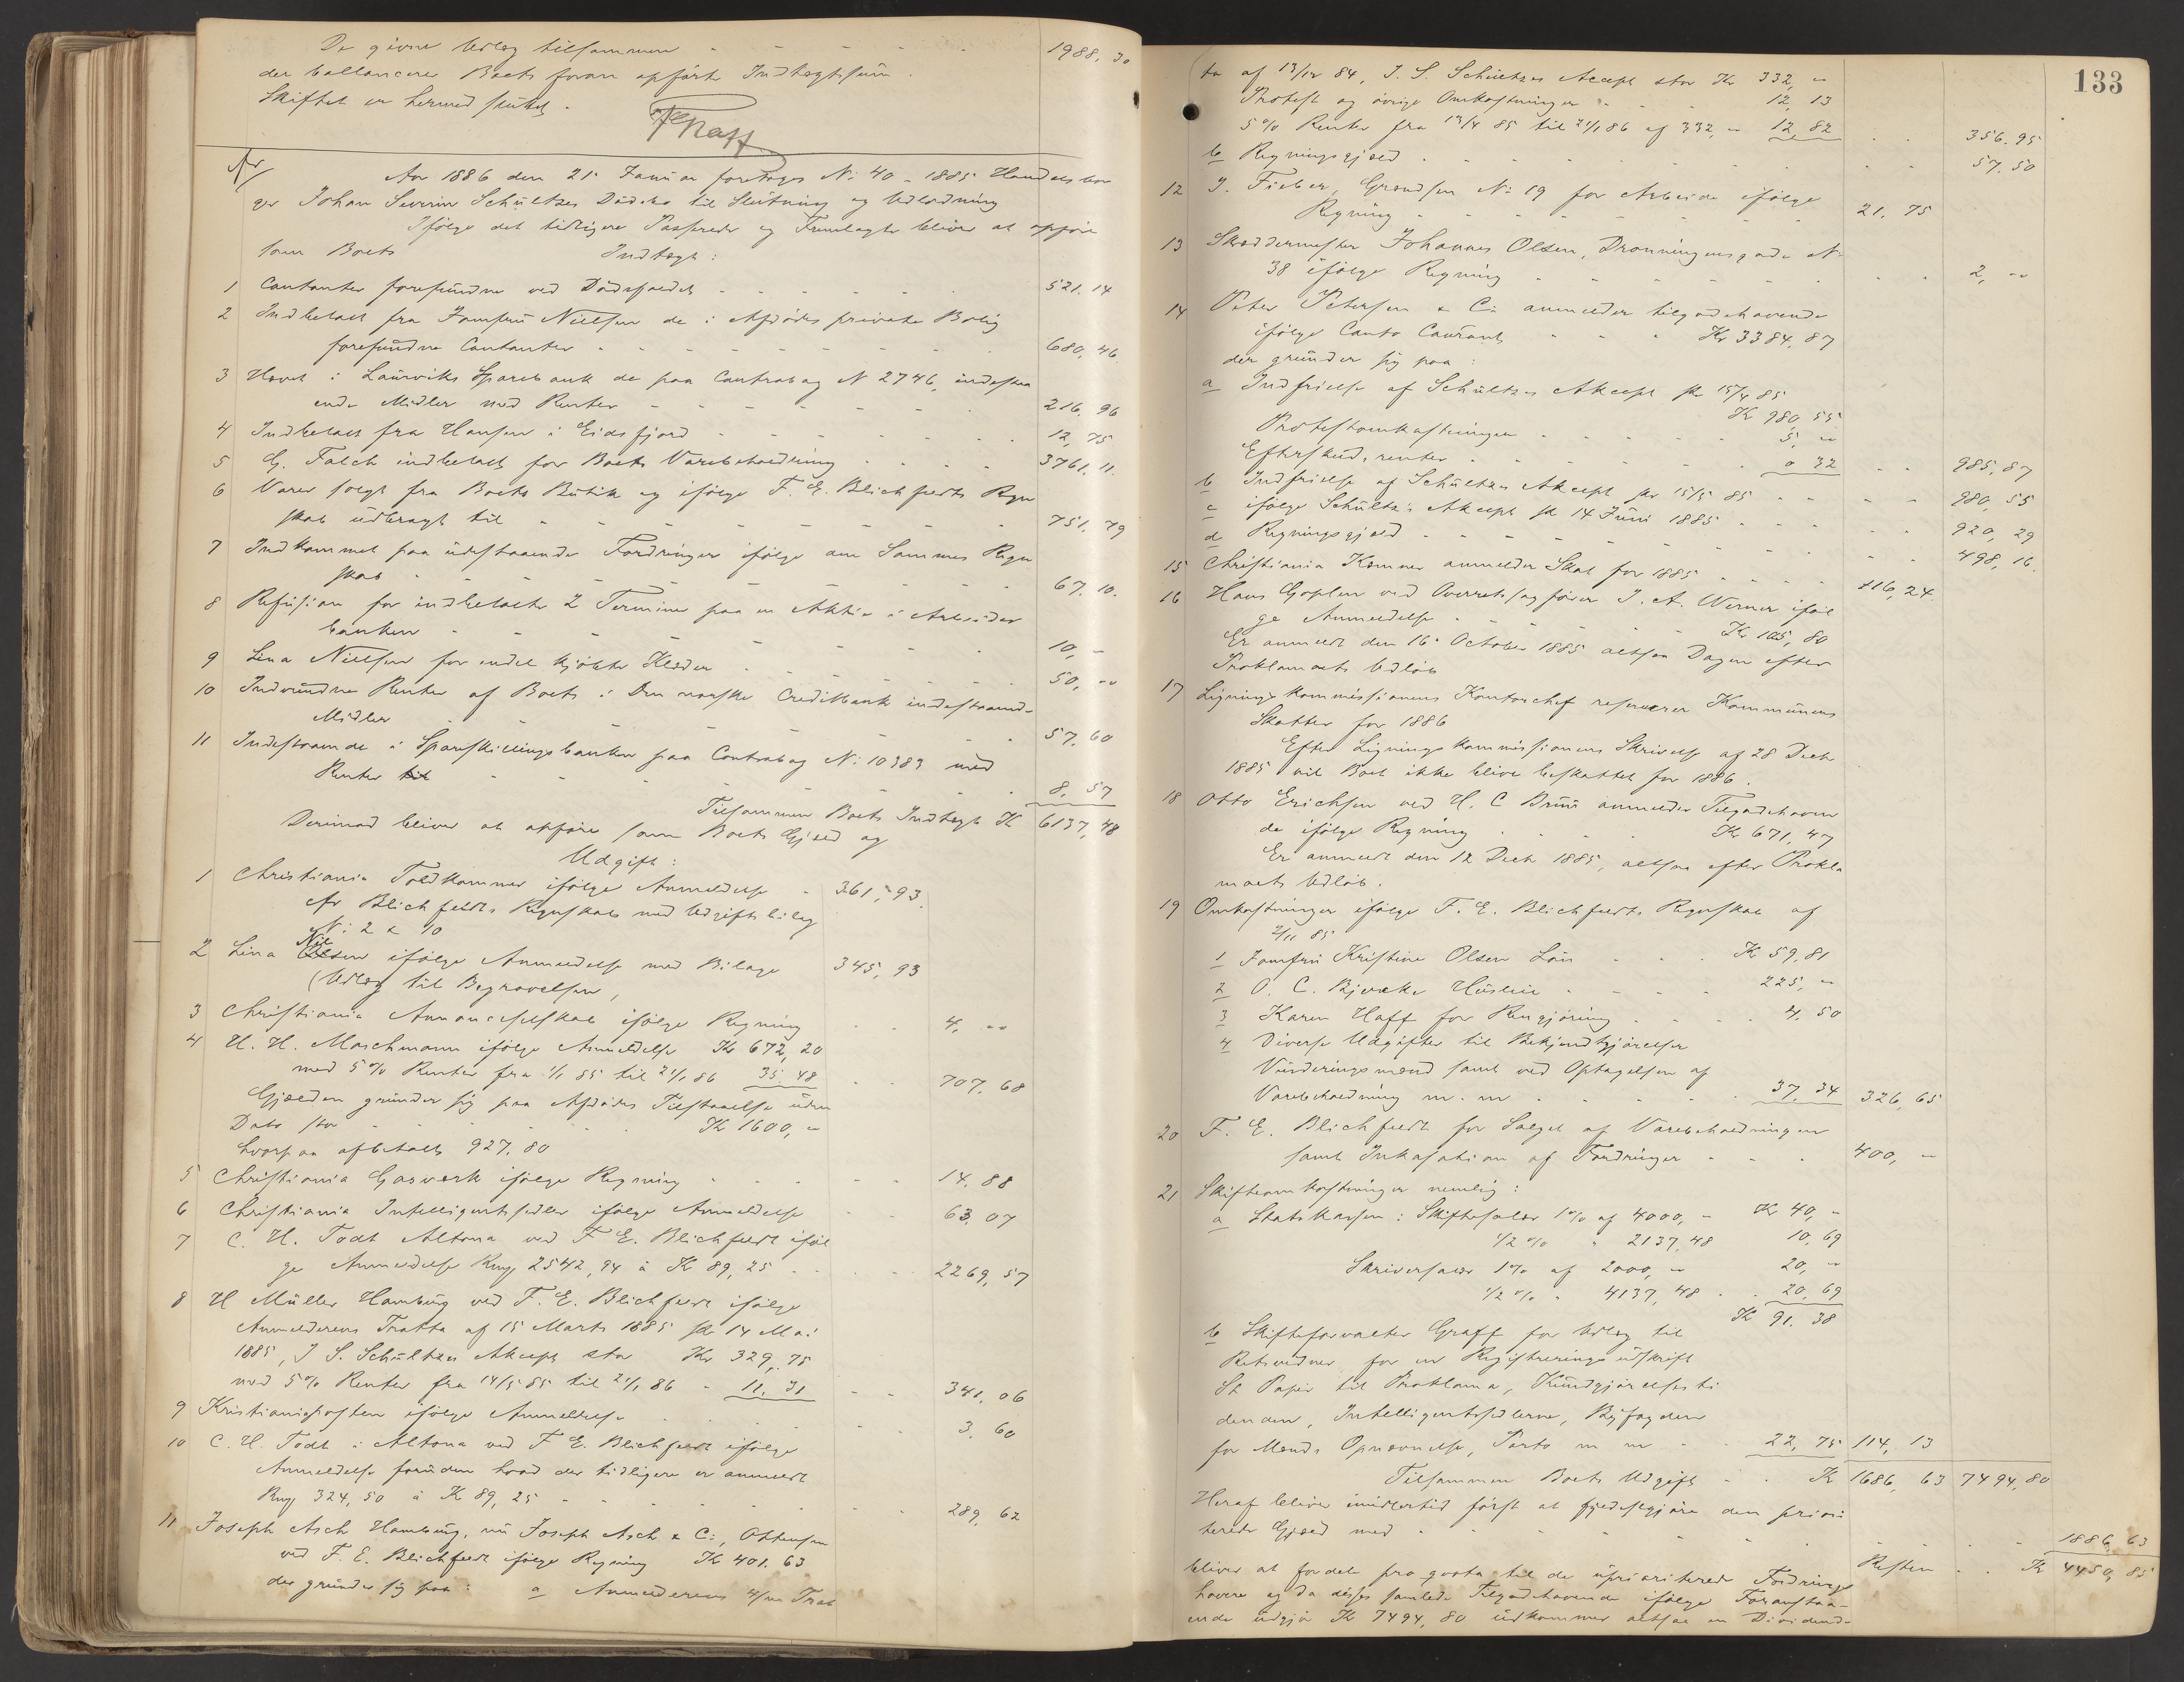 De givne Udlæg tilsammen - - - - 1988, 30
der ballancerer Boets foran opførte Indtægtssum.
Skiftet er hermed sluttet.
Graff
Aar 1886 den 21 Januar foretoges N: 40 - 1885 Handelsbor
ger Johan Severin Schültzes Dødsbo til Slutning og Udlodning
Ifølge det tidligere Passerede og Fremlagte bliver at opføre
som Boets Indtægt:
1 Contanter forefundne ved Dødsfaldet - - - 521. 14
2 Indbetalt fra Jomfru Nielsen de i Afdødes private Bolig
forefundne Contanter - - - 680, 46.
3 Hævet i Laurviks Sparebank de paa Contrabog N 2746, indestaa
ende Midler med Renter - - - 216. 96
4 Indbetalt fra Hansen i Eidsfjord - - - 12, 75
5 G. Falch indbetalt for Boets Varebeholdning - - - 3761, 11.
6 Varer solgt fra Boets Butik og ifølge F. E. Blichfeldts Regn
skab udbragt til - - - 751. 79
7 Indkommet paa udestaaende Fordringer ifølge den Sammes Regn
skab - - - 67. 10.
8 Refusion for indbetalte 2 Terminer paa en Aktie i Arbeider
banken - - - 10, -
9 Lina Nielsen for endel kjøbte Klæder - - - 50, --
10 Indvundne Renter af Boets i Den norske Creditbank indestaaend-
Midler - - - 57. 60
11 Indestaaende i Sparskillingsbanken paa Contrabog N: 10383 med
Renter til - - - 8, 57
Tilsammen Boets Indtægt K 6137, 48
Derimod bliver at opføre som Boets Gjæld og
Udgift:
1 Christiania Toldkammer ifølge Anmeldelse - 361, 93.
cfr Blichfeldts Regnskab med Udgiftsbilag
N: 2 & 10
2 Lina Nielsen ifølge Anmeldelse med Bilage 345, 93
(Udlæg til Begravelsen,
3 Christiania Annonceselskab ifølge Regning - - 4, --
4 H. H. Maschmann ifølge Anmeldelse Kr 672, 20
med 5% Renter fra 1/1 85 til 21/1 86 35. 48 - - 707, 68
Gjælden grunder sig paa Afdødes Tilstaaelse uden
Dato stor - - - K 1600, -
hvorpaa afbetalt 927, 80
5 Christiania Gasværk ifølge Regning - - - 14. 88
6 Christiania Intelligentssedler ifølge Anmeldelse - - 63, 07
7 C. H. Todt Altona ved F. E. Blichfeldt iføl
ge Anmeldelse Rmf 2542, 94 à K 89, 25 - - - 2269, 57
8 H Müller Hamburg ved F. E. Blichfeldt ifølge
Anmelderens Tratta af 15 Marts 1885 pr 14 Mai
1885, J S. Schültzes Akcept stor Kr 329, 75
med 5% Renter fra 14/5 85 til 21/1 86 - 11, 31 - - 341, 06
9 Kristianiaposten ifølge Anmeldelse - - - 3, 60
10 C. H. Todt i Altona ved F E. Blichfeldt ifølge
Anmeldelse foruden hvad der tidligere er anmeldt
Rmf 324, 50 à K 89, 25 - - - 289, 62
11 Joseph Asch Hamburg, nu Joseph Asch & C:, Ottensen
ved F. E. Blichfeldt ifølge Regning K 401. 63
der grunder sig paa: a Anmelderens Trat
133
ta af 13/12 84, J. S. Schültzes Accept stor Kr 332, -
Protest og øvrige Omkostninger - - - 12, 13
5% Renter fra 13/4 85 til 21/1 86 af 332, - 12, 82 - - 356. 95
b Regningsgjæld - - - 57. 50
12 J. Fieber, Grændsen N: 19 for Arbeide ifølge
Regning - - - 21. 75
13 Skræddermester Johannes Olsen, Dronningensgade N:
38 ifølge Regning - - - 2, --
14 Peter Petersen & C: anmelder tilgodehavende
ifølge Conto Courant - - - Kr 3384, 87
der grunder sig paa:
a Indfrielse af Schültzes Akcept pr 15/4 85
Kr 980, 55
Protestomkostninger - - - 5, -
Efterskudsrenter - - - 0 32 - - 985, 87
b Indfrielse af Schültzes Akcept pr 15/5 85 - - - 980, 55
c ifølge Schültzes Akcept pr 14 Juni 1885 - - - 920, 29
d Regningsgjæld - - - 498, 16.
15 Christiania Kæmner anmelder Skat for 1885 - - - 116, 24.
16 Hans Goplen ved Overretssagfører J. A. Werner iføl
ge Anmeldelse - - - Kr 105, 80
Er anmeldt den 16 October 1885 altsaa Dagen efter
Proklamaets Udløb
17 Ligningskommissionens Kontorchef reserverer Kommunens
Skatter for 1886
Efter Ligningskommissionens Skrivelse af 28 Decbr
1885 vil Boet ikke blive beskattet for 1886.
18 Otto Erichsen ved H. C Bruu anmelder Tilgodehaven
de ifølge Regning - - - Kr 671, 47
Er anmeldt den 12 Decbr 1885, altsaa efter Prokla
maets Udløb.
19 Omkostninger ifølge F. E. Blichfeldts Regnskab af
2/11 85
1 Jomfru Kristine Olsen Løn - - - K 59, 81
2 O. C. Bjerke Husleie - - - 225, -
3 Karen Haff for Rengjøring - - - 4, 50
4 Diverse Udgifter til Bekjendtgjørelser
Vurderingsmænd samt ved Optagelsen af
Varebeholdning m. m - - - 37, 34 326, 65
20 F. E. Blichfeldt for Salget af Varebeholdningen
samt Inkasation af Fordringer - - - 400, -
21 Skifteomkostninger nemlig:
a Statskassen: Skiftesalær 1% af 4000, - Kr 40, -
1/2 % " 2137, 48 10, 69
Skriversalær 1% af 2000, - 20, -
1/2 % " 4137, 48 - - 20, 69
K 91. 38
b Skifteforvalter Graff for Udlæg til
Retsvidner, for en Registreringsudskrift
St Papir til Proklama, Kundgjørelsesti
denden, Intelligentssedlerne, Byfogden
for Mænds Opnævnelse, Porto m m - - 22, 75 114, 13
Tilsammen Boets Udgift - - K 1686, 63 7494, 80
Heraf bliver imidlertid først at fyldestgjøre den priori
terede Gjæld med - - - 1886, 63
Resten - - K 4450, 85
bliver at fordele pro qvota til de uprioriterede Fordrings
havere og da disses samlede Tilgodehavende ifølge Foranstaa-
ende udgjør K 7494, 80 udkommer altsaa en Dividende